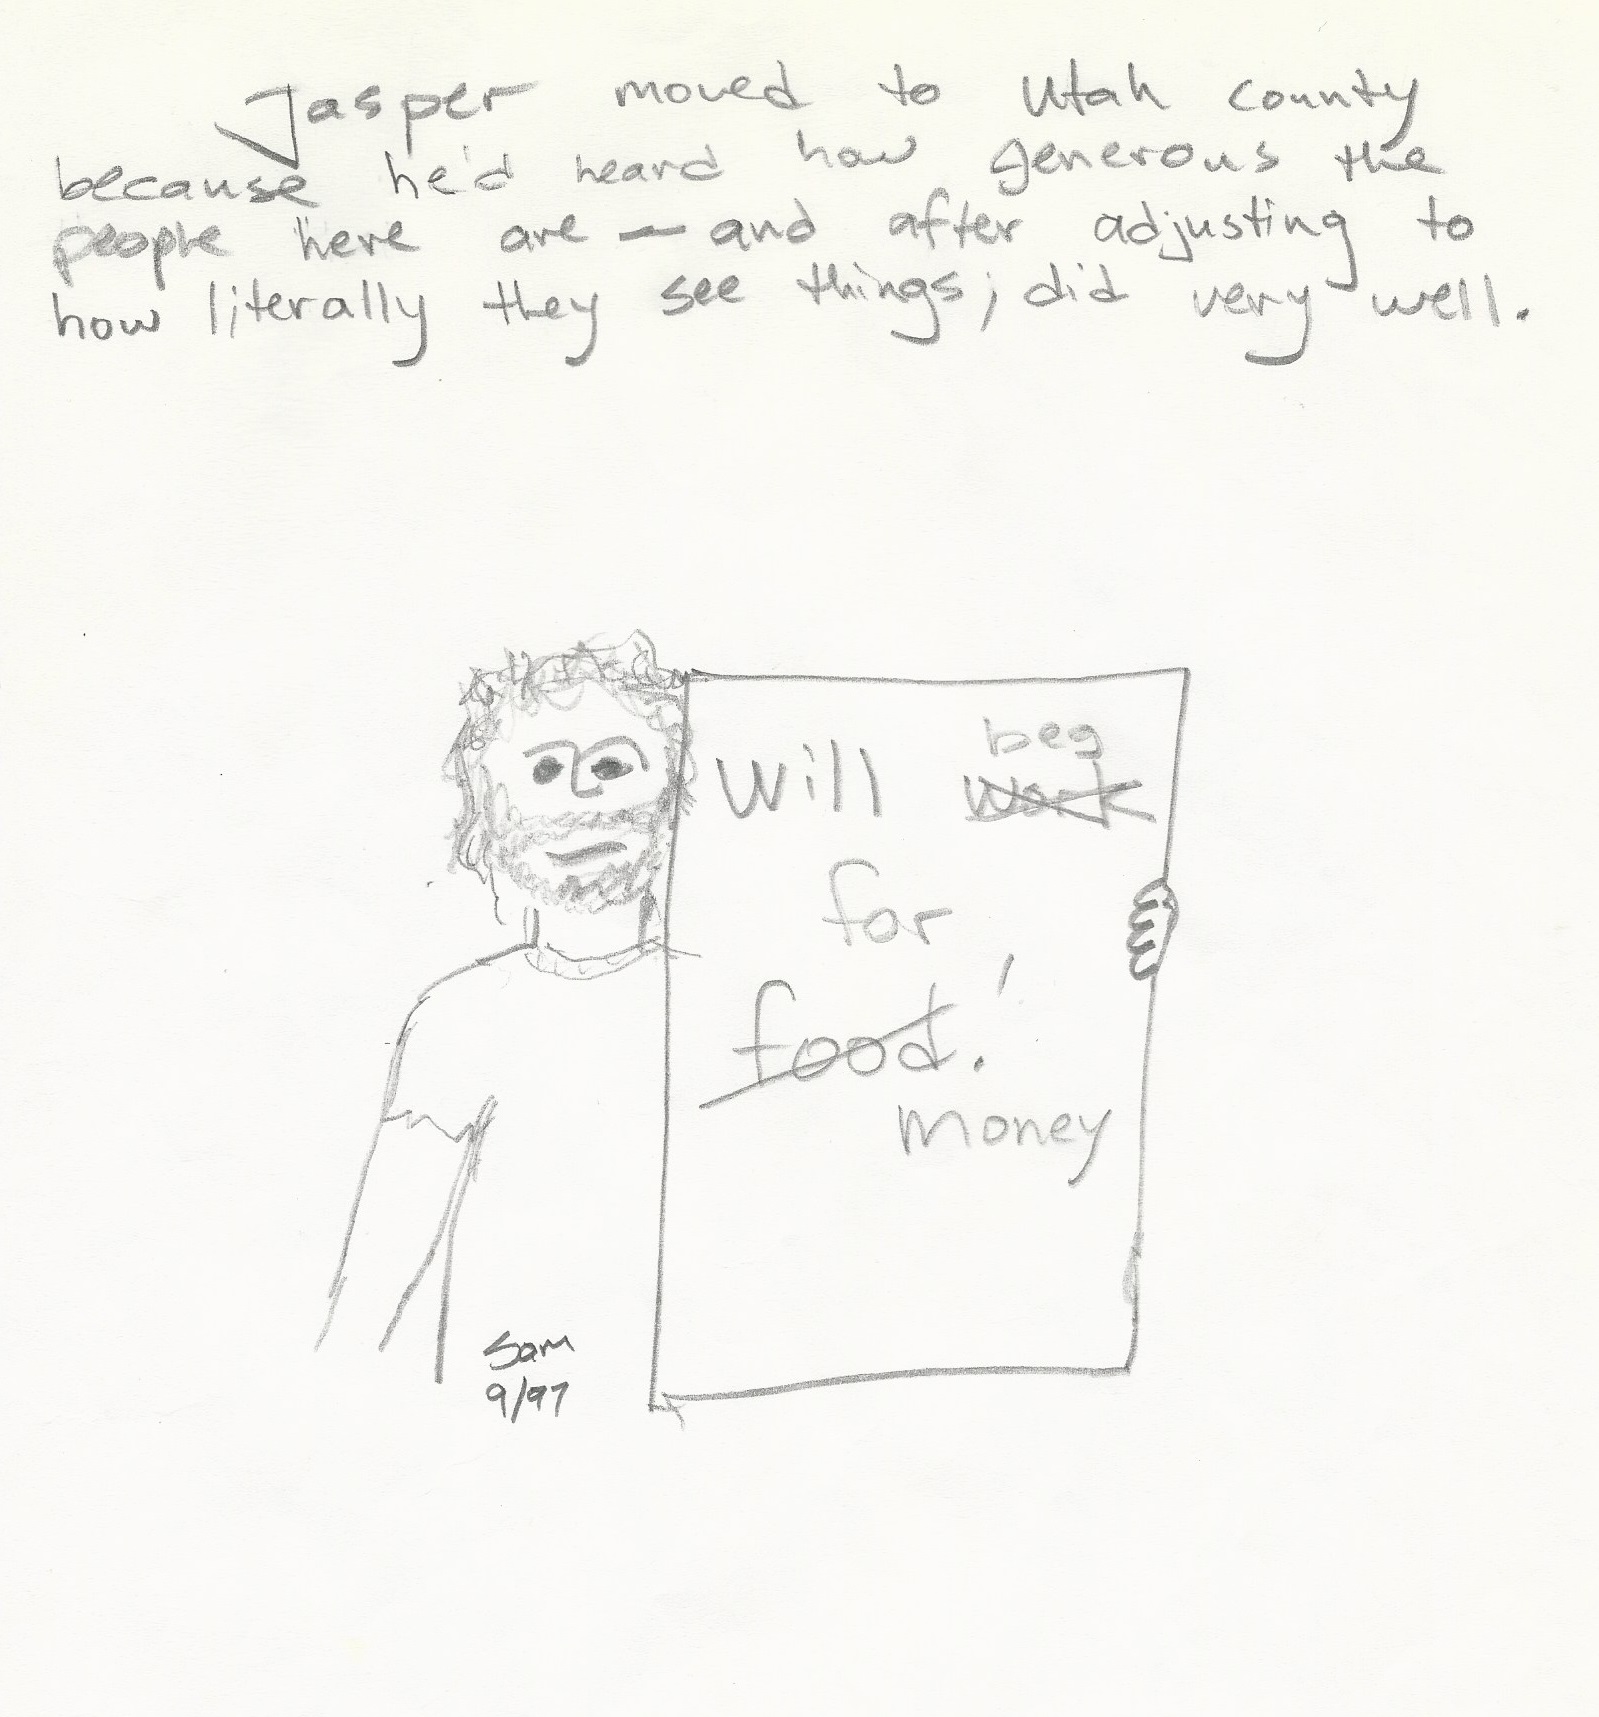 Jasper moved to Utah county
because he'd heard how generous the
people here are — and after adjusting to
how literally they see things; did very well.
beg
Will work
for
food.'
money
Sam
9/97